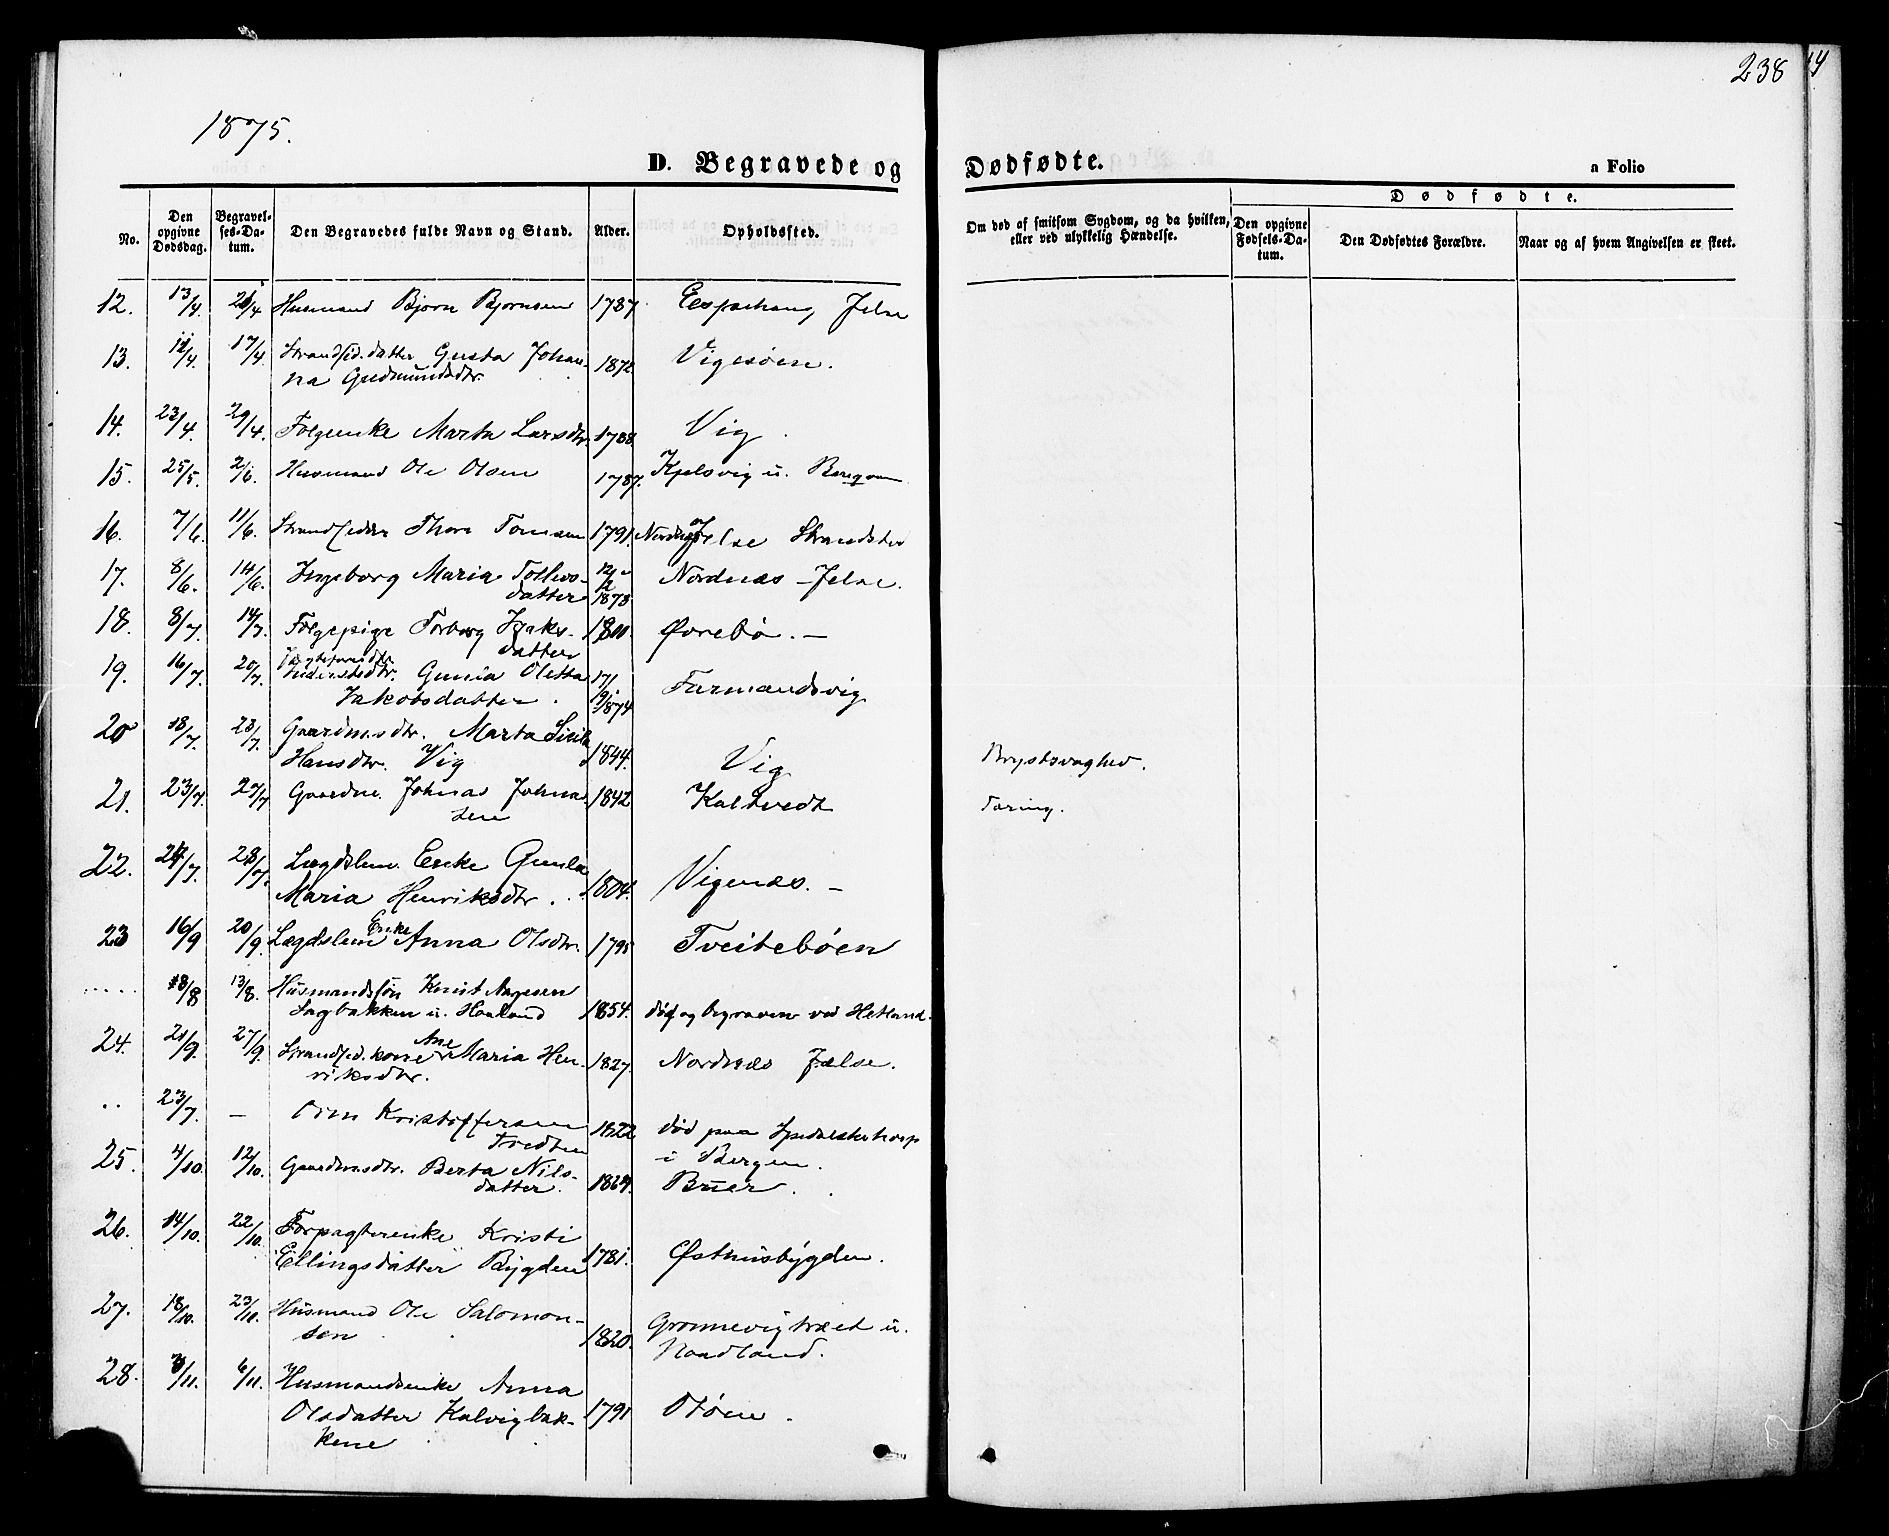 238
1875.
D. Begravede og Dødfødte.
n Folio
No. Den opgivne Dødsdag. Begravelses-Datum. Den Begravedes fulde Navn og Stand. Alder. Opholdssted. Om død af smitsom Sygdom, og da hvilken, eller ved ulykkelig Hændelse. Dødfødte. Den opgivne Fødsels-Datum. Den Dødfødtes Forældre. Naar og af hvem Angivelsen er skeet.
12. 13/4. 21/4 Husmand Bjørn Bjørnsen 1787. Espehaug Jelse
13. 11/4 17/4. Strandsid.datter Gusta Johan-
na Gudmundsdtr. 1872 Vigesøen.
14. 23/4. 29/4. Følgeenke Marta Larsdtr. 1788. Vig.
15. 25/5. 2/6. Husmand Ole Olsen 1787. Kjelsvig u.
16. 7/6. 11/6. Strandsidder Thore Tomsen 1791. Jelse Strandsted
17. 8/6. 14/6. Ingeborg Maria Tollevs-
datter 12/2 1873 Nordnæs - Jelse.
18. 8/7. 14/7. Følgepige Torborg Isaks-
datter 1800. Ørebø. -
19. 16/7. 20/7. Gunla Oletta
Jakobsdatter. 17/1 1874 Furmandsvig
20 18/7. 23/7. Gaardmsdtr. Marta Sisila
Hansdtr. Vig 1844. Vig Brystsvaghed.
21. 23/7. 27/7 Gaardm. Johnas Johna-
sen 1842 Kaltvedt Tæring.
22. 24/7. 28/7. Lægdslem. Enke Gunla
Maria Henriksdtr. 1804. Vigenæs. -
23 16/9 20/9. Lægdslem Enke Anna Olsdtr. 1795 Tveitebøen
..... 8/8 13/8. Husmandssøn Knut Aagesen
Sagbakken u. Haaland 1854. død og begraven ved Hetland.
24. 21/9. 27/9. Strandsid.kone Ane Maria Hen-
riksdtr. 1827. Nordnæs Jælse.
.. 23/7. - Kristoffersen
Tvedten 1822 død paa Spedalskehosp
i Bergen.
25. 4/10. 12/10. Gaardmsdtr. Berta Nils-
datter. 1869. Buer.
26. 14/10. 22/10. Forpagterenke Kristi
Ellingsdatter Bygden 1781. Østhusbygden.
27. 18/10. 23/10. Husmand Ole Salomon-
sen 1820. Grønnevigtræet u.
Naadland.
28. 3/11. 6/11. Husmandsenke Anna
Olsdatter Kalvigbak-
kene 1791 Otøen.